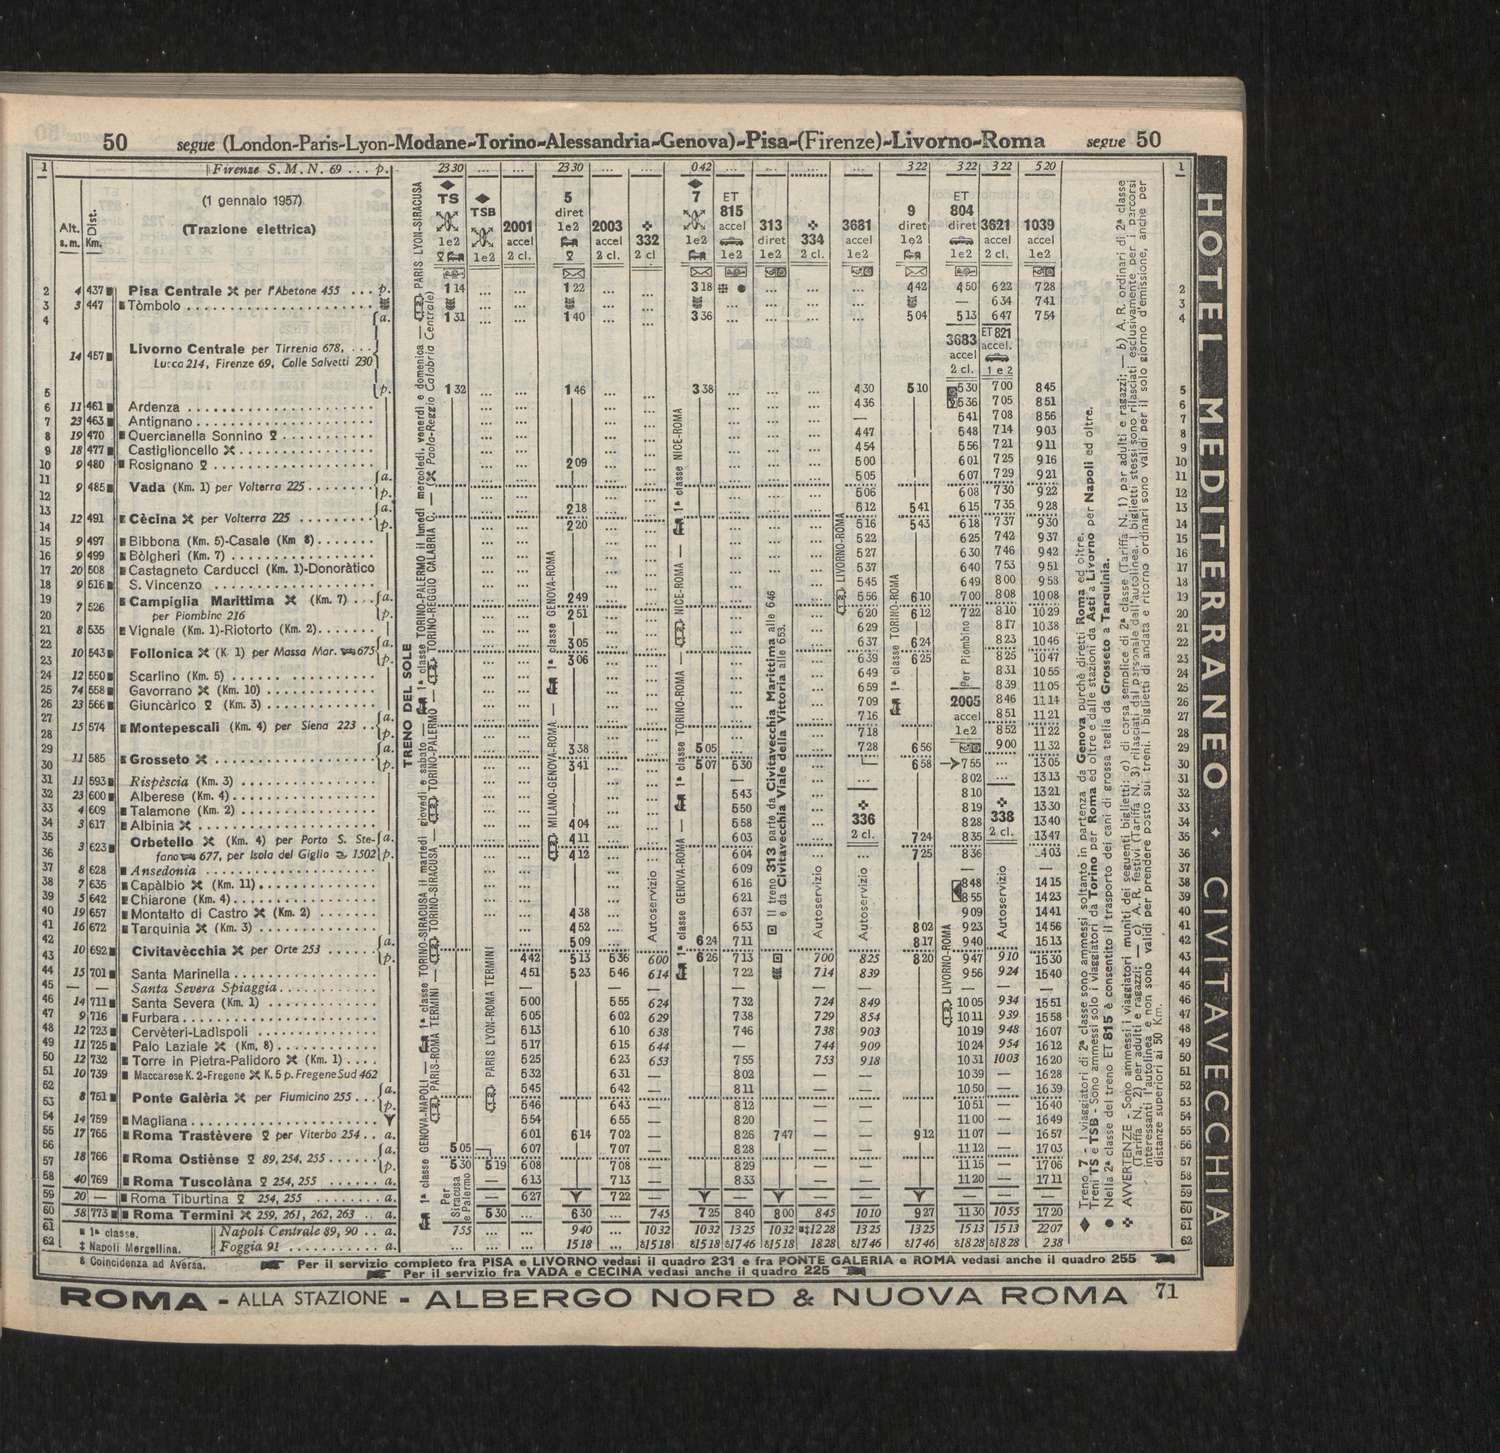 50 segue (London-Paris-Lyon-Modane-Torino-Alessandria-Genova)-Pisa-(Firenze)-Livorno-Roma segue 50
1 Firenze S. M. N. 69 ... p. 23 30 ... ... 23 30 ... ... 0 42 ... ... ... 3 22 3 22 3 22 5 20 1
(1 gennaio 1957)
(Trazione elettrica)
Alt. s. m.
Dist. Km.
TS 1e2
TSB 1e2
2001 accel 2 cl.
5 diret 1e2
2003 accel 2 cl.
332 2 cl
7 1e2
ET 815 accel 1e2
313 diret 1e2
334 2 cl.
3681 accel 1e2
9 diret 1e2
ET 804 diret 1e2
3621 accel 2 cl.
1039 accel 1e2
2 4 437 Pisa Centrale per l'Abetone 455 ... p. 1 14 ... ... 1 22 ... ... 3 18 ... ... ... 4 42 4 50 6 22 7 28 2
3 3 447 Tòmbolo ... — 6 34 7 41 3
4 a. 1 31 ... ... 1 40 ... ... 3 36 ... ... ... 5 04 5 13 6 47 7 54 4
14 457 Livorno Centrale per Tirrenia 678,
Lucca 214, Firenze 69, Colle Salvetti 230
3683 accel 2 cl.
ET 821 accel. 1 e 2
5 p. 1 32 ... ... 1 46 ... ... 3 38 ... ... ... 4 30 5 10 5 30 7 00 8 45 5
6 11 461 Ardenza 4 36 5 36 7 05 8 51 6
7 23 463 Antignano — 6 41 7 08 8 56 7
8 19 470 Quercianella Sonnino 4 47 6 48 7 14 9 03 8
9 18 477 Castiglioncello 4 54 5 56 7 21 9 11 9
10 9 480 Rosignano 2 09 5 00 6 01 7 25 9 16 10
11 a. 5 05 6 07 7 29 9 21 11
9 485 Vada (Km. 1) per Volterra 225
12 p. 5 06 6 08 7 30 9 22 12
13 a. 2 18 5 12 5 41 6 15 7 35 9 28 13
12 491 Cècina per Volterra 225
14 p. 2 20 5 16 5 43 6 18 7 37 9 30 14
15 9 497 Bibbona (Km. 5)-Casale (Km 8) 5 22 6 25 7 42 9 37 15
16 9 499 Bòlgheri (Km. 7) 5 27 6 30 7 46 9 42 16
17 20 508 Castagneto Carducci (Km. 1)-Donoràtico 5 37 6 40 7 53 9 51 17
18 9 516 S. Vincenzo 5 45 6 49 8 00 9 58 18
19 Campiglia Marittima (Km. 7) a. 2 49 5 56 6 10 7 00 8 08 10 08 19
7 526
20 per Piombino 216 p. 2 51 6 20 6 12 7 22 8 10 10 29 20
21 8 535 Vignale (Km. 1)-Riotorto (Km. 2) 6 29 8 17 10 38 21
22 a. 3 05 6 37 6 24 8 23 10 46 22
10 543 Follonica (K. 1) per Massa Mar. 675
23 p. 3 06 6 39 6 25 8 25 10 47 23
24 12 550 Scarlino (Km. 5) 6 49 8 31 10 55 24
25 74 558 Gavorrano (Km. 10) 6 59 8 39 11 05 25
26 23 566 Giuncàrico (Km. 3) 7 09 2005 8 46 11 14 26
27 a. 7 16 accel 8 51 11 21 27
15 574 Montepescali (Km. 4) per Siena 223
28 p. 7 18 1e2 8 52 11 22 28
29 a. 3 38 5 05 7 28 6 56 9 00 11 32 29
11 585 Grosseto
30 p. 3 41 5 07 5 30 6 58 7 55 ... 13 05 30
31 11 593 Rispèscia (Km. 3) — 8 02 13 13 31
32 23 600 Alberese (Km. 4) 5 43 8 10 13 21 32
33 4 609 Talamone (Km. 2) 5 50 8 19 13 30 33
34 3 617 Albinia 4 04 5 58 336 8 28 338 13 40 34
35 Orbetello (Km. 4) per Porto S. Ste- a. 4 11 6 03 2 cl. 7 24 8 35 2 cl. 13 47 35
3 623
36 fano 677, per Isola del Giglio 1502 p. 4 12 6 04 7 25 8 36 14 03 36
37 8 628 Ansedonia 6 09 — — 37
38 7 635 Capàlbio (Km. 11) 6 16 8 48 14 15 38
39 5 642 Chiarone (Km. 4) 6 21 8 55 14 23 39
40 19 657 Montalto di Castro (Km. 2) 4 38 6 37 9 09 14 41 40
41 16 672 Tarquinia (Km. 3) 4 52 6 53 8 02 9 23 14 56 41
42 a. 5 09 6 24 7 11 8 17 9 40 15 13 42
10 692 Civitavècchia per Orte 253
43 p. 4 42 5 13 5 36 6 00 6 26 7 13 7 00 8 25 8 20 9 47 9 10 15 30 43
44 15 701 Santa Marinella 4 51 5 23 5 46 6 14 7 22 7 14 8 39 9 56 9 24 15 40 44
45 — — Santa Severa Spiaggia — — — — — — — — — 45
46 14 711 Santa Severa (Km. 1) 5 00 5 55 6 24 7 32 7 24 8 49 10 05 9 34 15 51 46
47 9 716 Furbara 5 05 6 02 6 29 7 38 7 29 8 54 10 11 9 39 15 58 47
48 12 723 Cervèteri-Ladìspoli 5 13 6 10 6 38 7 46 7 38 9 03 10 19 9 48 16 07 48
49 11 725 Palo Laziale (Km. 8) 5 17 6 15 6 44 — 7 44 9 09 10 24 9 54 16 12 49
50 12 732 Torre in Pietra-Palidoro (Km. 1) 5 25 6 23 6 53 7 55 7 53 9 18 10 31 10 03 16 20 50
51 10 739 Maccarese K. 2-Fregene K. 5 p. Fregene Sud 462 5 32 6 31 — 8 02 — — 10 39 — 16 28 51
52 a. 5 45 6 42 — 8 11 — — 10 50 — 16 39 52
8 751 Ponte Galèria per Fiumicino 255
53 p. 5 46 6 43 — 8 12 — — 10 51 — 16 40 53
54 14 759 Magliana 5 54 6 55 — 8 20 — — 11 00 — 16 49 54
55 17 765 Roma Trastèvere per Viterbo 254 .. a. 6 01 6 14 7 02 — 8 26 7 47 — — 9 12 11 07 — 16 57 55
56 a. 5 05 — 6 07 7 07 — 8 28 — — 11 12 — 17 03 56
18 766 Roma Ostiènse 89, 254, 255
57 p. 5 30 5 19 6 08 7 08 — 8 29 — — 11 15 — 17 06 57
58 40 769 Roma Tuscolàna 254, 255 a. — 6 13 7 13 — 8 33 — — 11 20 — 17 11 58
59 20 — Roma Tiburtina 254, 255 a. — 6 27 7 22 — — — — — 59
60 58 773 Roma Termini 259, 261, 262, 263 .. a. 5 30 ... 6 30 ... 7 45 7 25 8 40 8 00 8 45 10 10 9 27 11 30 10 55 17 20 60
61 1ª classe. Napoli Centrale 89, 90 .. a. 7 55 ... ... 9 40 ... 10 32 10 32 13 25 10 32 ‡12 28 13 25 13 25 15 13 15 13 22 07 61
62 ‡ Napoli Mergellina. Foggia 91 a. ... ... ... 15 18 ... 15 18 15 18 17 46 15 18 18 28 17 46 17 46 18 28 18 28 2 38 62
Coincidenza ad Aversa.
Per il servizio completo fra PISA e LIVORNO vedasi il quadro 231 e fra PONTE GALERIA e ROMA vedasi anche il quadro 255
Per il servizio fra VADA e CECINA vedasi anche il quadro 225
TRENO DEL SOLE
PARIS-ROMA TERMINI
TORINO-SIRACUSA
TORINO-PALERMO
TORINO-REGGIO CALABRIA C.
(Paola-Reggio Calabria Centrale)
PARIS LYON-SIRACUSA
Per Siracusa e Palermo
PARIS LYON-ROMA TERMINI
MILANO-GENOVA-ROMA
1ª classe GENOVA-ROMA
Autoservizio
1ª classe GENOVA-ROMA
1ª classe TORINO-ROMA
NICE-ROMA
1ª classe NICE-ROMA
Il treno 313 parte da Civitavecchia Marittima alle 6 46
e da Civitavecchia Viale della Vittoria alle 6 53.
Autoservizio
LIVORNO-ROMA
Autoservizio
1ª classe TORINO-ROMA
Per Piombino
LIVORNO-ROMA
Autoservizio
Treno 7 - I viaggiatori di 2ª classe sono ammessi soltanto in partenza da Genova purchè diretti Roma ed oltre.
Treni TS e TSB - Sono ammessi solo i viaggiatori da Torino per Roma ed oltre e dalle stazioni da Asti a Livorno per Napoli ed oltre.
Nella 2ª classe del treno ET 815 è consentito il trasporto dei cani di grossa taglia da Grosseto a Tarquinia.
AVVERTENZE - Sono ammessi i viaggiatori muniti dei seguenti biglietti: a) di corsa semplice di 2ª classe (Tariffa N. 1) per adulti e ragazzi; — b) A. R. ordinari di 2ª classe
(Tariffa N. 2) per adulti e ragazzi; — c) A. R. festivi (Tariffa N. 3) rilasciati dal personale dell'autolinea. I biglietti stessi sono rilasciati esclusivamente per i percorsi
interessanti l'autolinea e non sono validi per prendere posto sui treni. I biglietti di andata e ritorno ordinari sono validi per il solo giorno d'emissione, anche per
distanze superiori ai 50 Km.
HOTEL MEDITERRANEO • CIVITAVECCHIA
ROMA - ALLA STAZIONE - ALBERGO NORD & NUOVA ROMA 71